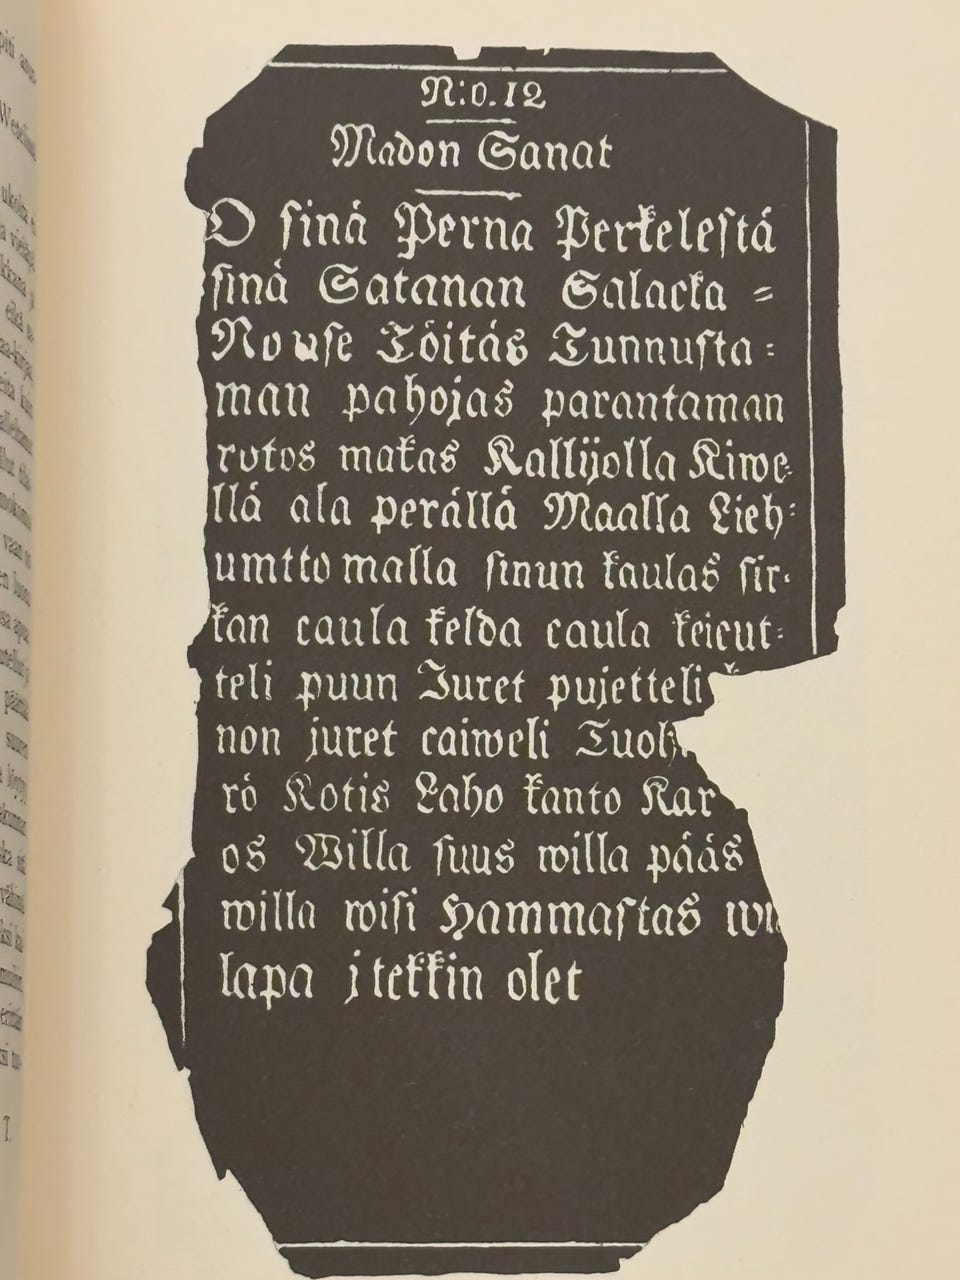 N:o.12
Madon Sanat
O sinä Perna Perkelestä
sinä Satanan Salacka =
Nouse Töitäs Tunnusta =
man pahojas parantaman
rotos makas Kallijolla Kiwe=
llä ala perällä Maalla Lieh=
umtto malla sinun kaulas sir=
kan caula kelda caula keicut=
teli puun Juret pujetteli
non juret caiweli
rö Kotis Laho kanto Kar
os Willa suus willa pääs
willa wisi Hammastas
lapa jtekkin olet